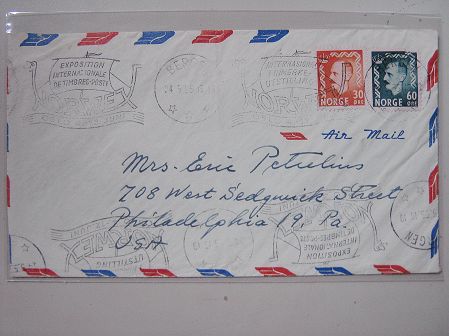 EXPOSITION
INTERNATIONALE
DE TIMBRES-POSTE
NORWEX
INTERNASJONAL
FRIMERKE-
UTSTILLING
NORWEX
30
NORGE ØRE
60
NORGE ØRE
Air Mail
Mrs. Eric Petrelius
708 West Sedgwick Street
Philadelphia 19, Pa.
USA
NORWEX
UTSTILLING
NORWEX
EXPOSITION
INTERNATIONALE
DE TIMBRES-POSTE